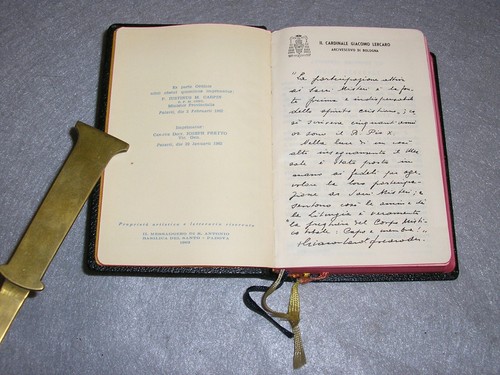 Ex parte Ordinis
nihil obstat quominus imprimatur.
Padova, die 2 Februarii 1962
Imprimatur
Padova, die 28 Januarii 1962
Proprietà artistica e letteraria riservata
IL MESSAGGERO DI S. ANTONIO
BASILICA DEL SANTO - PADOVA
1962
IL CARDINALE GIACOMO LERCARO
ARCIVESCOVO DI BOLOGNA
"La partecipazione attiva
ai Sacri Misteri è la fon
te prima e indispensabile
dello spirito cristiano,
scriveva cinquant'anni
or sono il B. Pio X.
Nella luce di un così
alto insegnamento il Mes
sale è stato posto in
mano ai fedeli per age
volare la loro partecipa
zione ai Sacri Misteri; e
sentono così le anime
la Liturgia è veramente
"la preghiera del Corpo Misti
co totale: Capo e membra"."